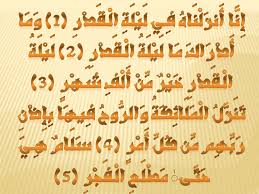 إِنَّا أَنزَلْنَاهُ فِي لَيْلَةِ الْقَدْرِ (1) وَمَا
أَدْرَاكَ مَا لَيْلَةُ الْقَدْرِ (2) لَيْلَةُ
الْقَدْرِ خَيْرٌ مِّنْ أَلْفِ شَهْرٍ (3)
تَنَزَّلُ الْمَلَائِكَةُ وَالرُّوحُ فِيهَا بِإِذْنِ
رَبِّهِم مِّن كُلِّ أَمْرٍ (4) سَلَامٌ هِيَ
حَتَّى مَطْلَعِ الْفَجْرِ (5)